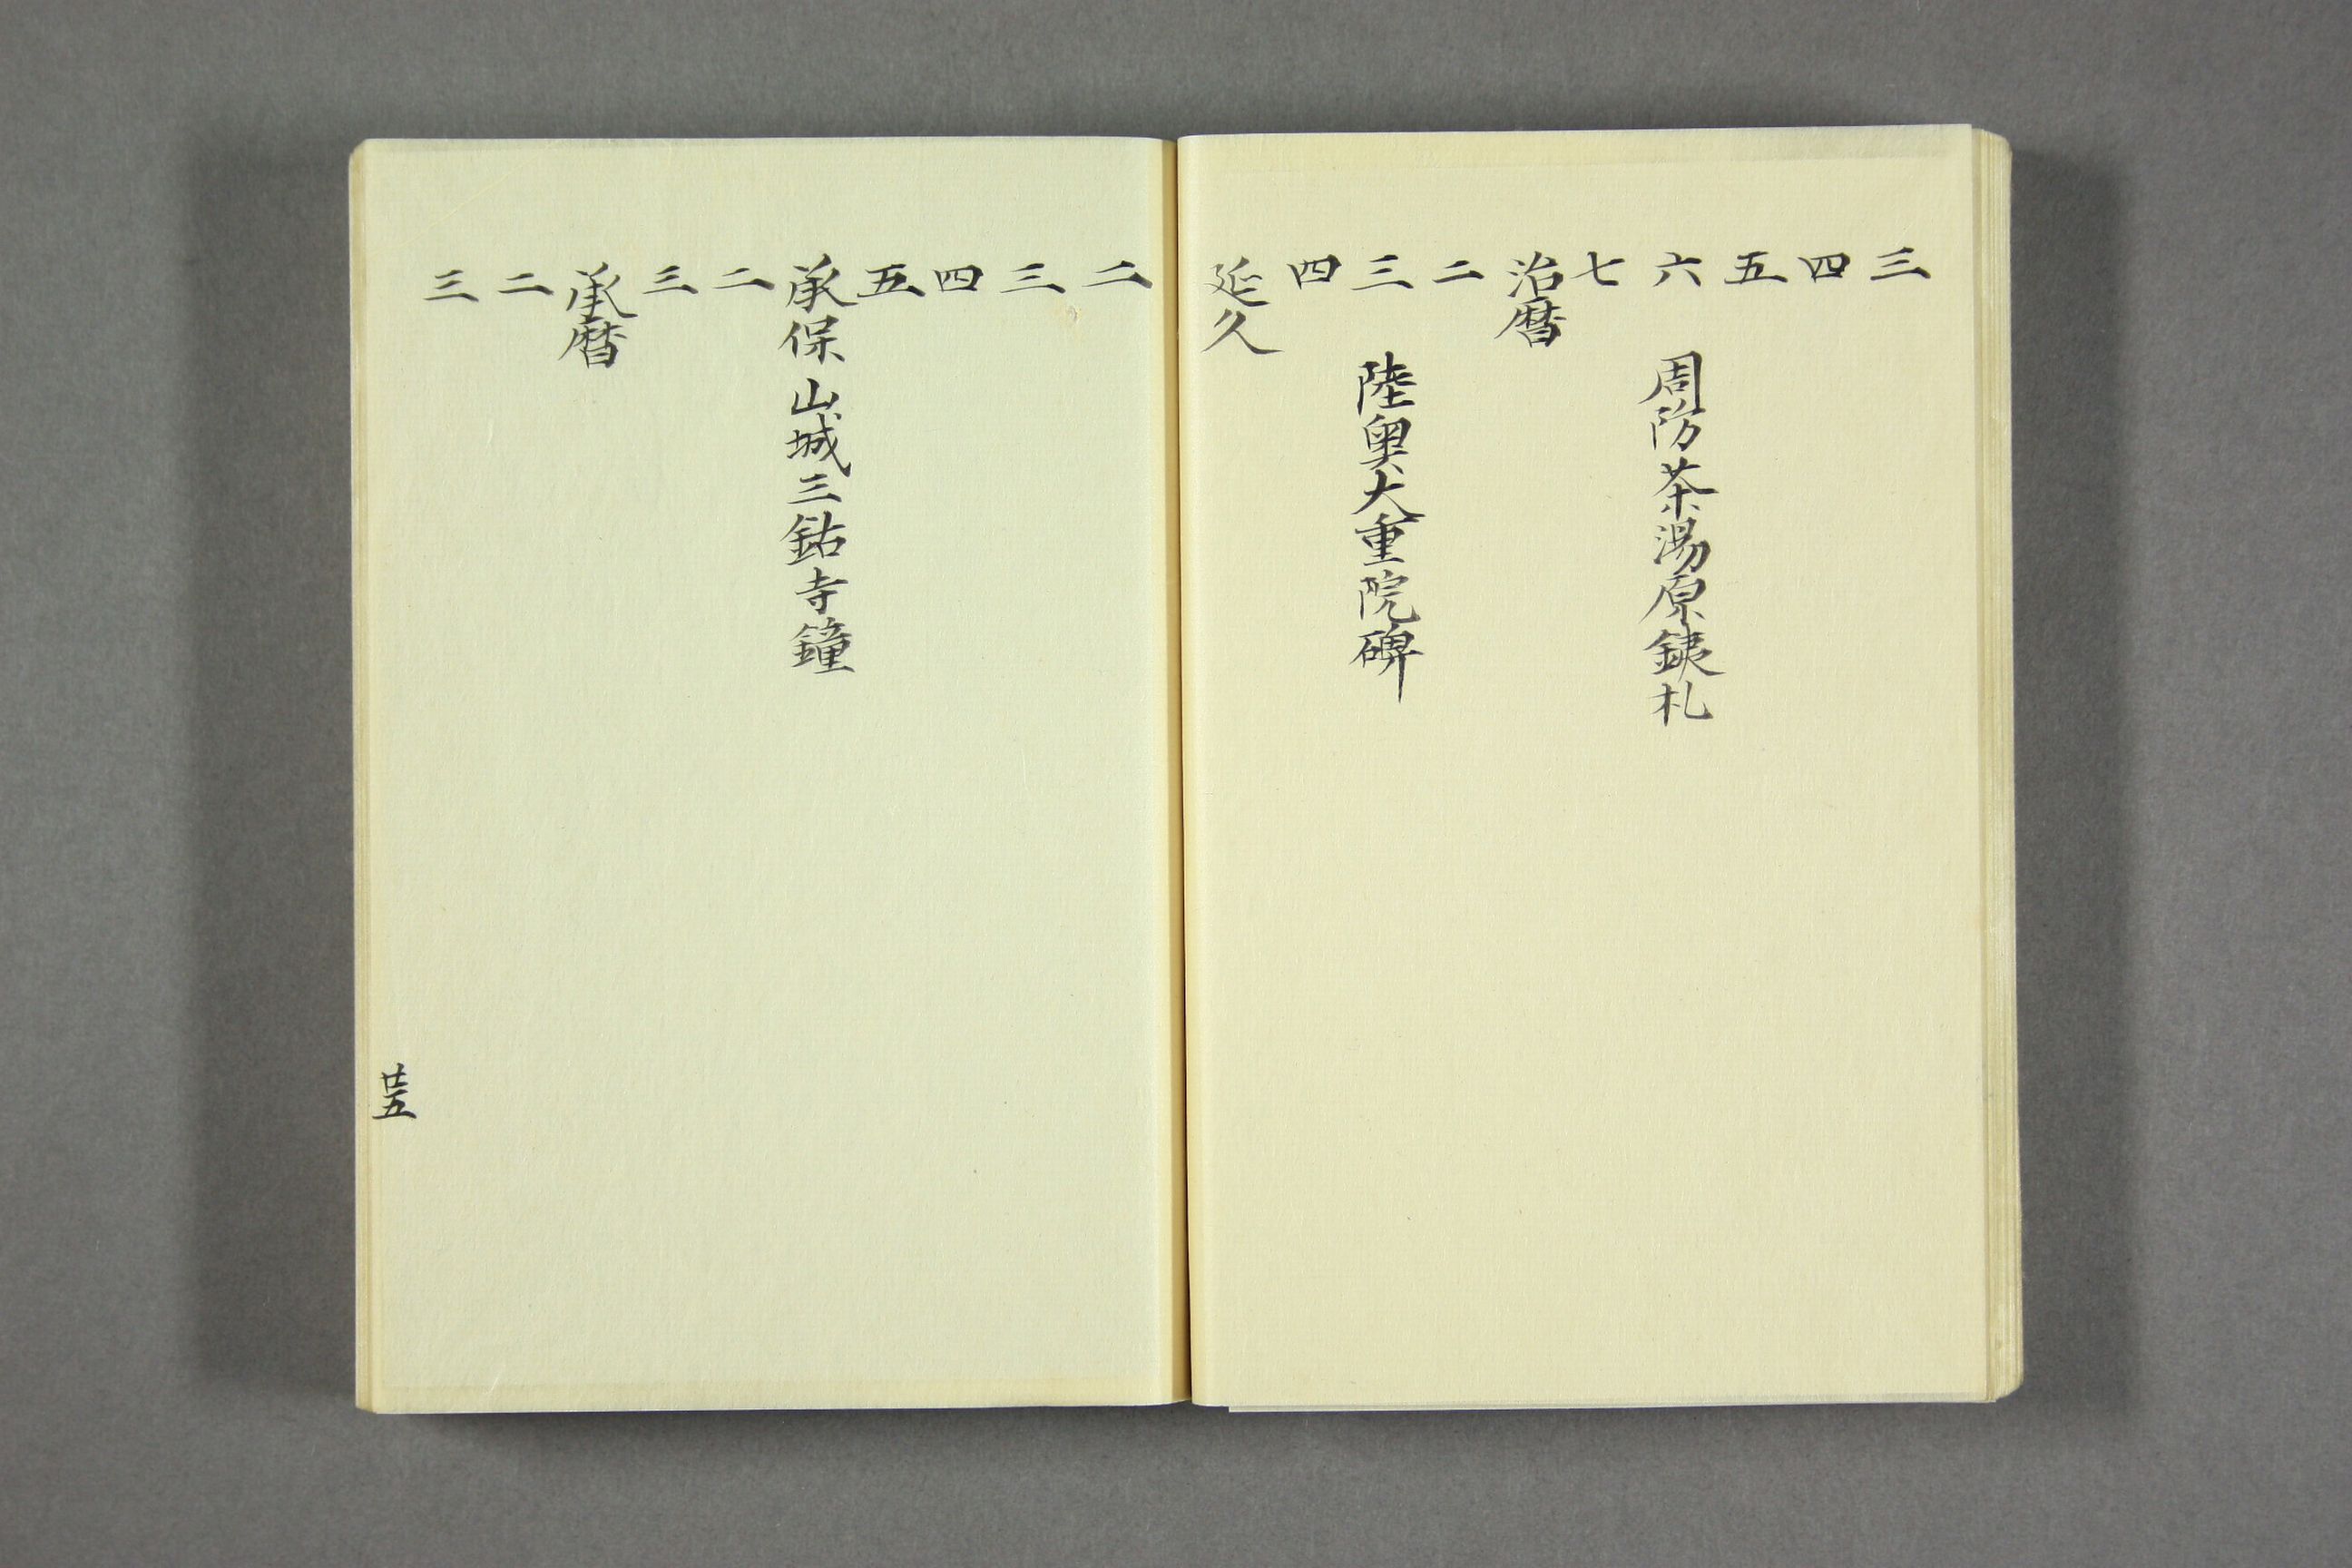 三
四
五
六 周防茶湯原銕札
七
治暦
二
三 陸奥大重院碑
四
延久
二
三
四
五
承保 山城三鈷寺鐘
二
三
承暦
二
三
廿五